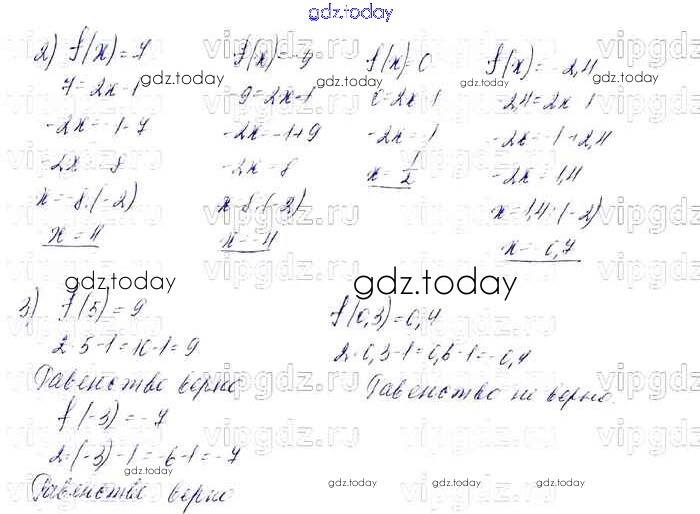 gdz.today
2) f(x)=7
7=2x-1
-2x=-1-7
-2x=-8
x=-8:(-2)
x=4
f(x)=-9
-9=2x-1
-2x=-1+9
-2x=8
x=8:(-2)
x=-4
f(x)=0
0=2x-1
-2x=-1
x=1/2
f(x)=-2,4
-2,4=2x-1
-2x=-1+2,4
-2x=1,4
x=1,4:(-2)
x=-0,7
3) f(5)=9
2·5-1=10-1=9
Равенство верно
f(-3)=-7
2·(-3)-1=-6-1=-7
Равенство верно
f(0,3)=0,4
2·0,3-1=0,6-1=-0,4
Равенство не верно.
gdz.today
vipgdz.ru